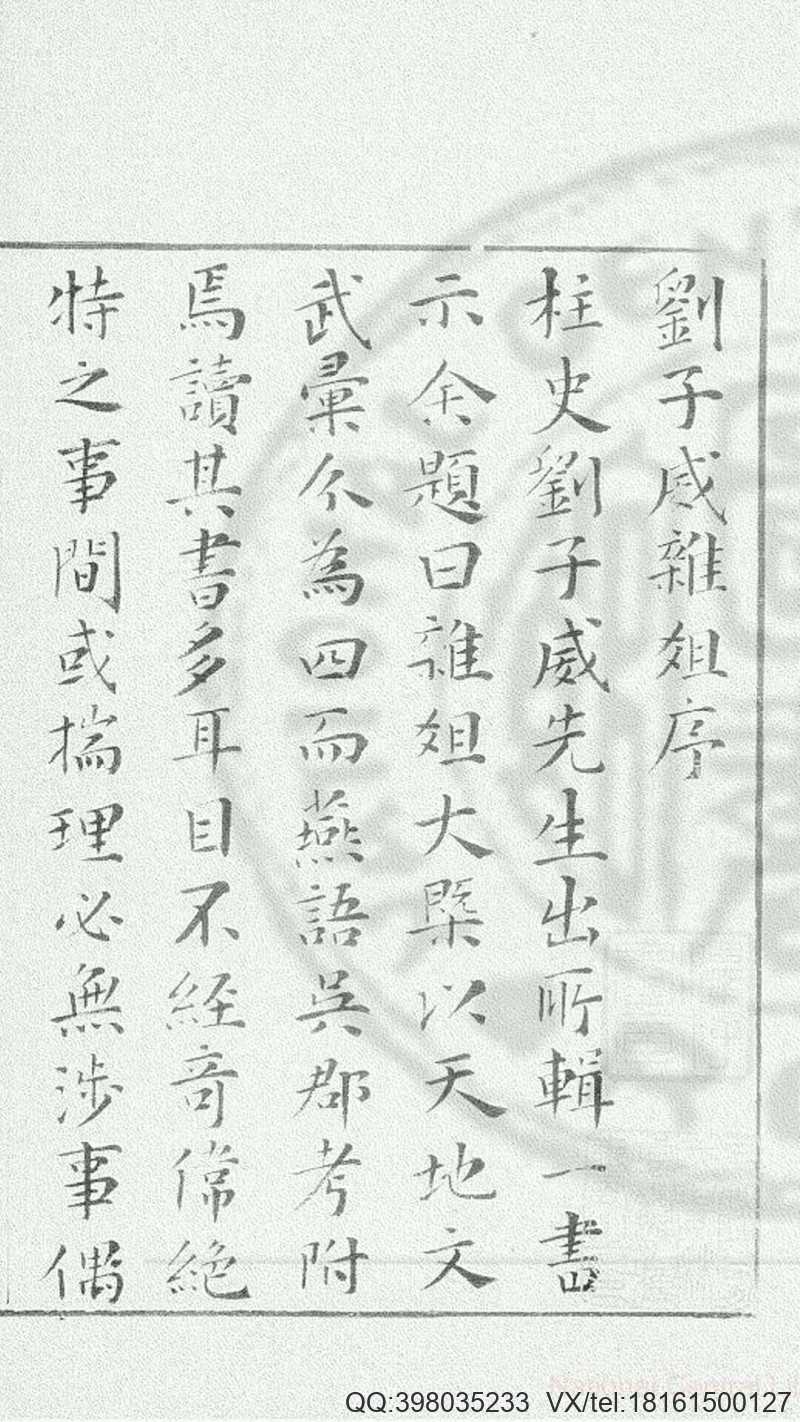 劉子威雜俎序
柱史劉子威先生出所輯一書
示余題曰雜俎大槩以天地文
武彙分為四而燕語吳郡考附
焉讀其書多耳目不經竒偉絕
特之事間或揣理必無涉事偶
QQ:398035233 VX/tel:18161500127